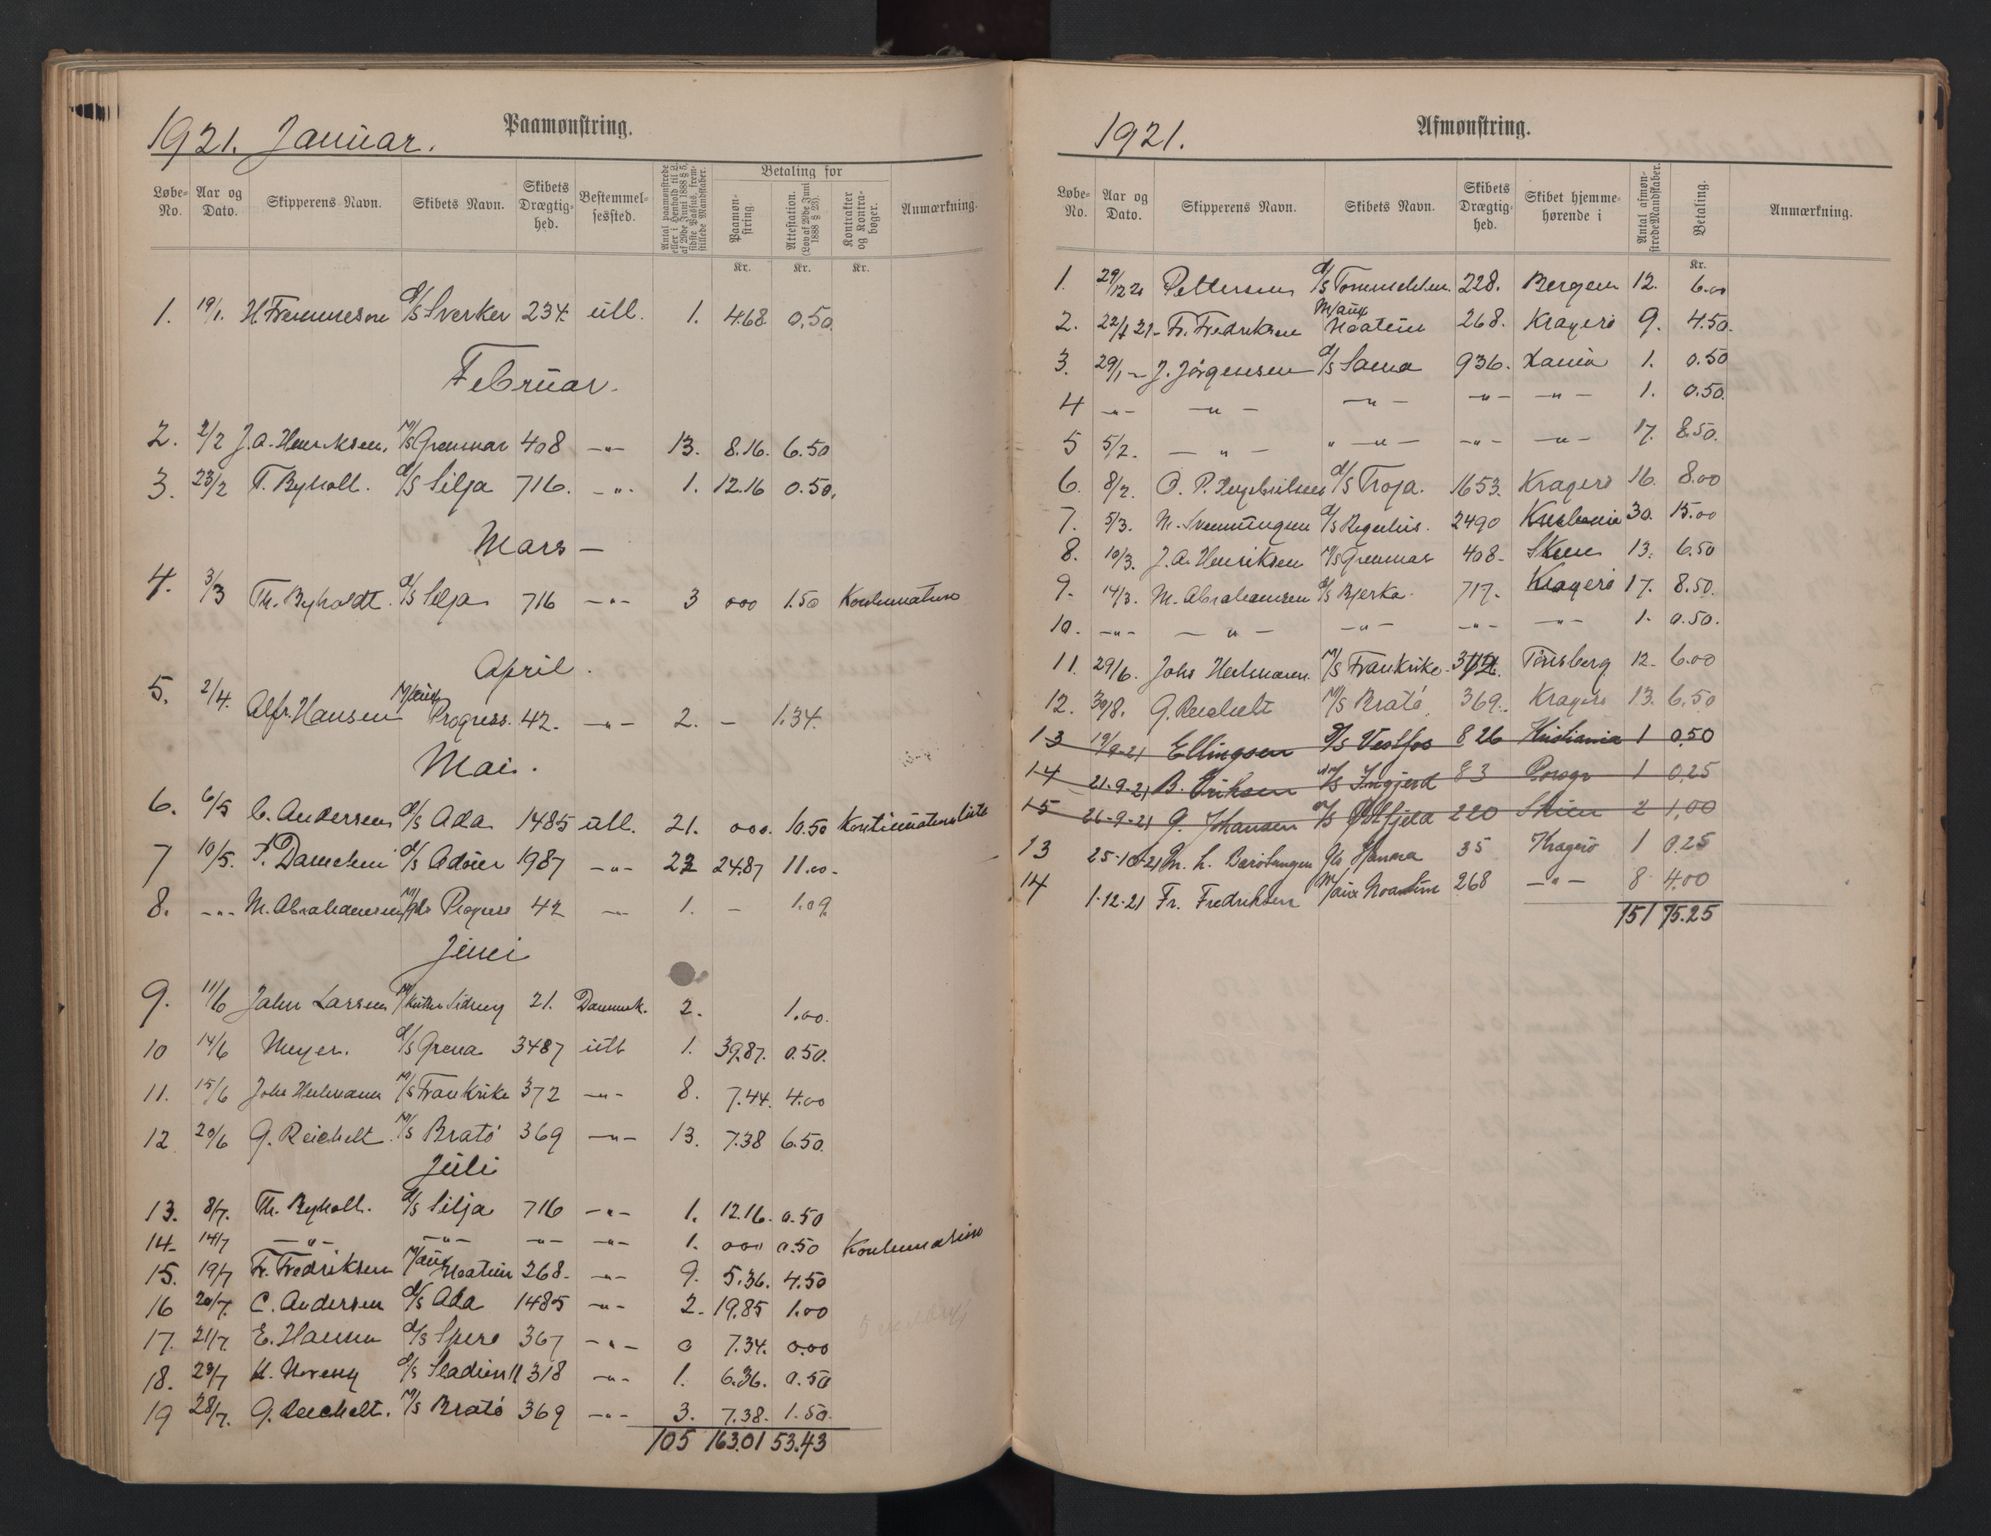 1921. Januar. Paamønstring.
Løbe-No. Aar og Dato. Skipperens Navn. Skibets Navn. Skibets Drægtighed. Bestemmelsessted. Antal paamønstrede eller i Henhold til L. af 29de Juni 1888 § 5, sidste Passus, fremstillede Mandskaber. Betaling for Paamønstring. Attestation. (Lov af 29de Juni 1888 § 23). Kontrakter og Kontrabøger. Anmærkning.
Kr. Kr. Kr.
1. 19/1. d/s Sverker 234. utl. 1. 4.68 0.50
Februar.
2. 2/2 J. A. Henriksen. M/s Grenmar 408 -"- 13. 8.16. 6.50
3. 23/2 T. Byholt. d/s Silja 716. -"- 1. 12.16 0.50.
Mars —
4. 3/3 Th. Byholdt d/s Silja 716 -"- 3 000 1.50
April.
5. 2/4. Alfr. Hansen M/aux Progress. 42. -"- 2. - 1.34.
Mai.
6. 6/5 C. Andersen d/s Ada 1485 utl. 21. 000. 10.50
7 10/5. d/s 1987 -"- 22 24.87 11.00.
8. -"- M. Abrahamsen Progress 42 -"- 1. - 1.09.
Juni
9. 11/6 John Larsen 21. Danmark. 2. 1.00.
10 14/6 Meyer. d/s Grena 3487 utl 1. 39.87. 0.50.
11. 15/6 Johs Heilmann M/s Frankrike 372 -"- 8. 7.44. 4.00
12 20/6 G. Reichelt. M/s Bratø 369 -"- 13. 7.38 6.50.
Juli
13. 8/7. Th. Byholt. d/s Silja 716 -"- 1. 12.16. 0.50
14- 14/7 -"- -"- -"- -"- 1. 000 0.50
15. 19/7 Fr. Fredriksen M/aux Noatun 268- -"- 9. 5.36. 4.50
16 20/7. C. Andersen d/s Ada 1485 -"- 2. 19.85 1.00
17. 21/7. E. Hanna d/s Spero 367 -"- 0 7.34. 0.00
18. d/s 318 -"- 1. 6.36. 0.50
19 28/7. G. Reichelt. M/s Bratø 369 -"- 3. 7.38. 1.50.
105 163.01 53.43
1921. Afmønstring.
Løbe-No. Aar og Dato. Skipperens Navn. Skibets Navn. Skibets Drægtighed. Skibet hjemmehørende i Antal afmønstrede Mandskaber. Betaling. Anmærkning.
Kr.
1. 29/12 20 Pettersen d/s 228. Bergen 12. 6.00
2. 22/1 21- Fr. Fredriksen M/aux Noatun 268. Kragerø 9. 4.50.
3. 29/1 - J. Jørgensen d/s 936. Xania 1. 0.50
4 -"- -"- -"- -"- -"- 1. 0.50.
5 5/2. -"- -"- -"- -"- 17. 8.50.
6. 8/2. d/s Troja. 1653. Kragerø 16. 8.00
7. 5/3. M. Svenningsen d/s 2490 Kristiania 30. 15.00
8. 10/3. J. A. Henriksen M/s Grenmar 408- Skien 13. 6.50
9. 14/3. M. Abrahamsen d/s Bjerka. 717. Kragerø 17. 8.50.
10. -"- -"- -"- -"- -"- 1. 0.50.
11. 29/6. Johs Heilmann. M/s Frankrike. 372. Tønsberg 12- 6.00
12. 30/8. G. Reichelt M/s Bratø. 369. Kragerø 13. 6.50
13 19/9-21 Ellingsen d/s Vestfos 826 Kristiania 1 0,50
14 21-9-21 B. Eriksen M/s Ingjerd 83 Porsgr 1 0,25
15 26-9-21 G. Johansen M/s Østfjeld 220 Skien 2 1,00
13 25-10-21 Hanna 35 Kragerø 1 0.25
14 1-12-21 Fr. Fredriksen M/aux Noatun 268 -"- 8 4.00
151 75.25